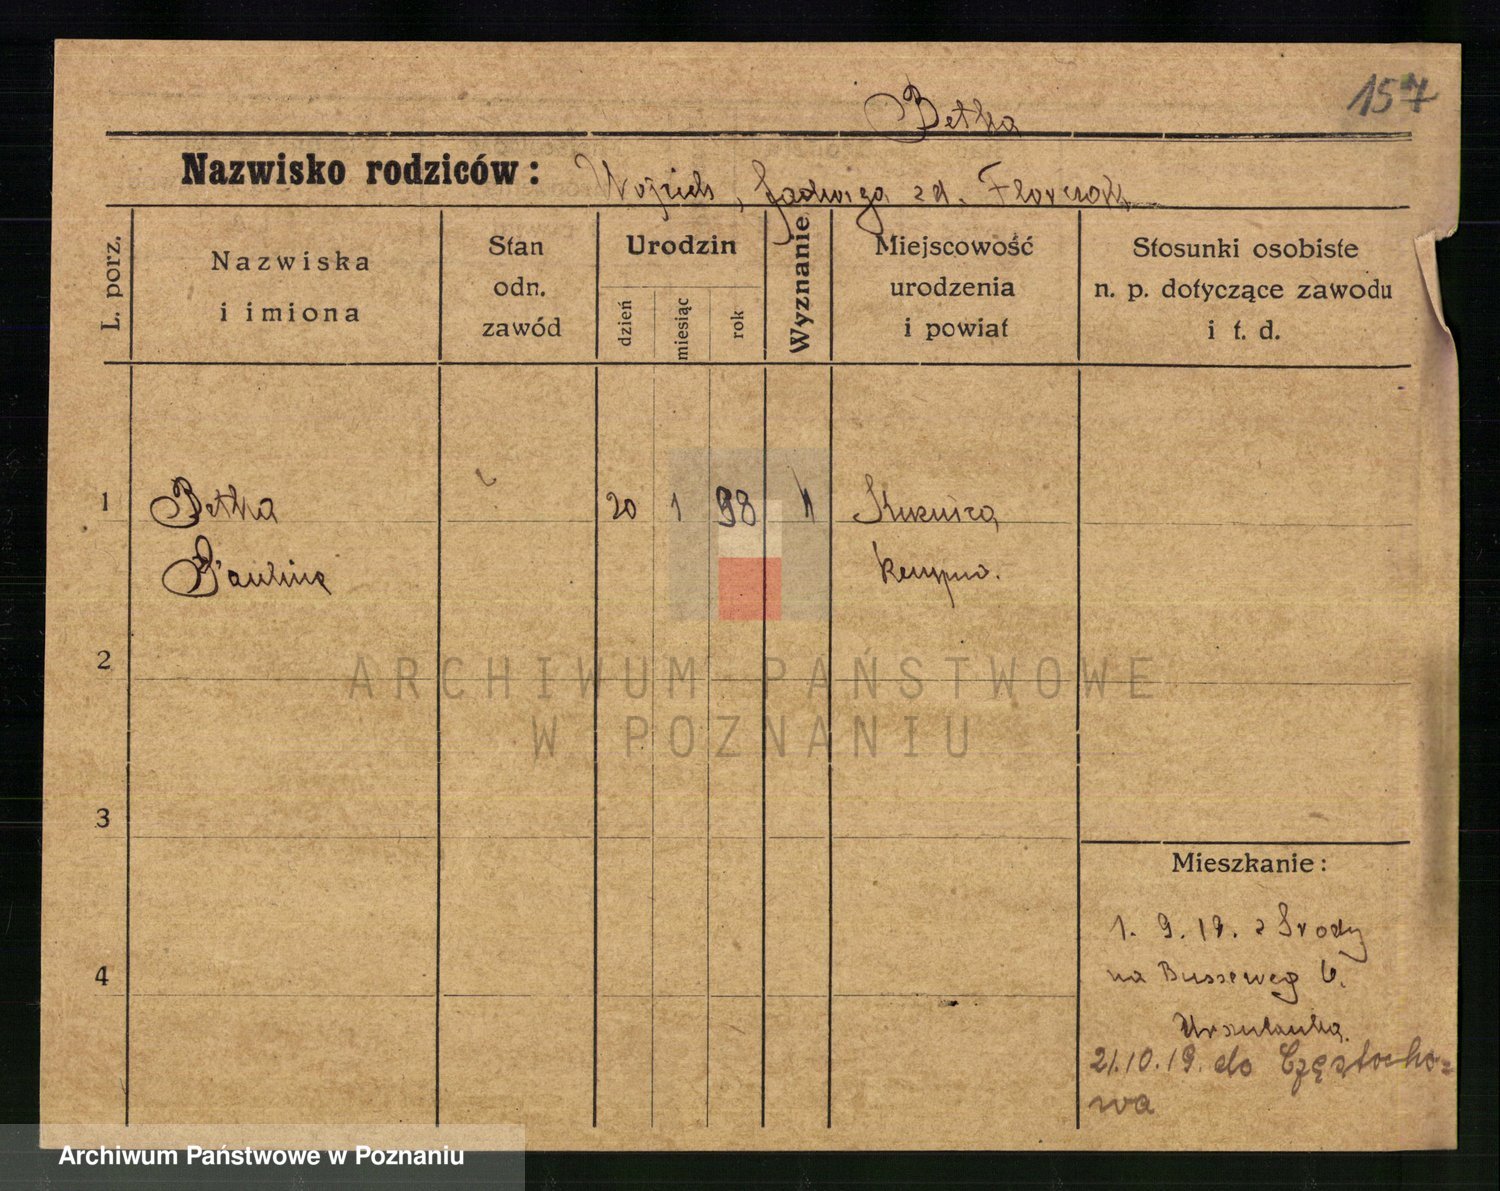 157
Betka
Nazwisko rodziców: Wojciech, Jadwiga zd. Florczak
L. porz.
Nazwiska
i imiona
Stan
odn.
zawód
Urodzin
dzień
miesiąc
rok
Wyznanie
Miejscowość
urodzenia
i powiat
Stosunki osobiste
n. p. dotyczące zawodu
i t. d.
1 Betka 20 1 98 Kuźnica
Paulina Kempno.
2
ARCHIWUM PAŃSTWOWE
W POZNANIU
3
Mieszkanie:
1. 9. 19. z Środy
4 na Busseweg 6.
Urszulanka
21.10.19. do Częstocho=
wa
Archiwum Państwowe w Poznaniu